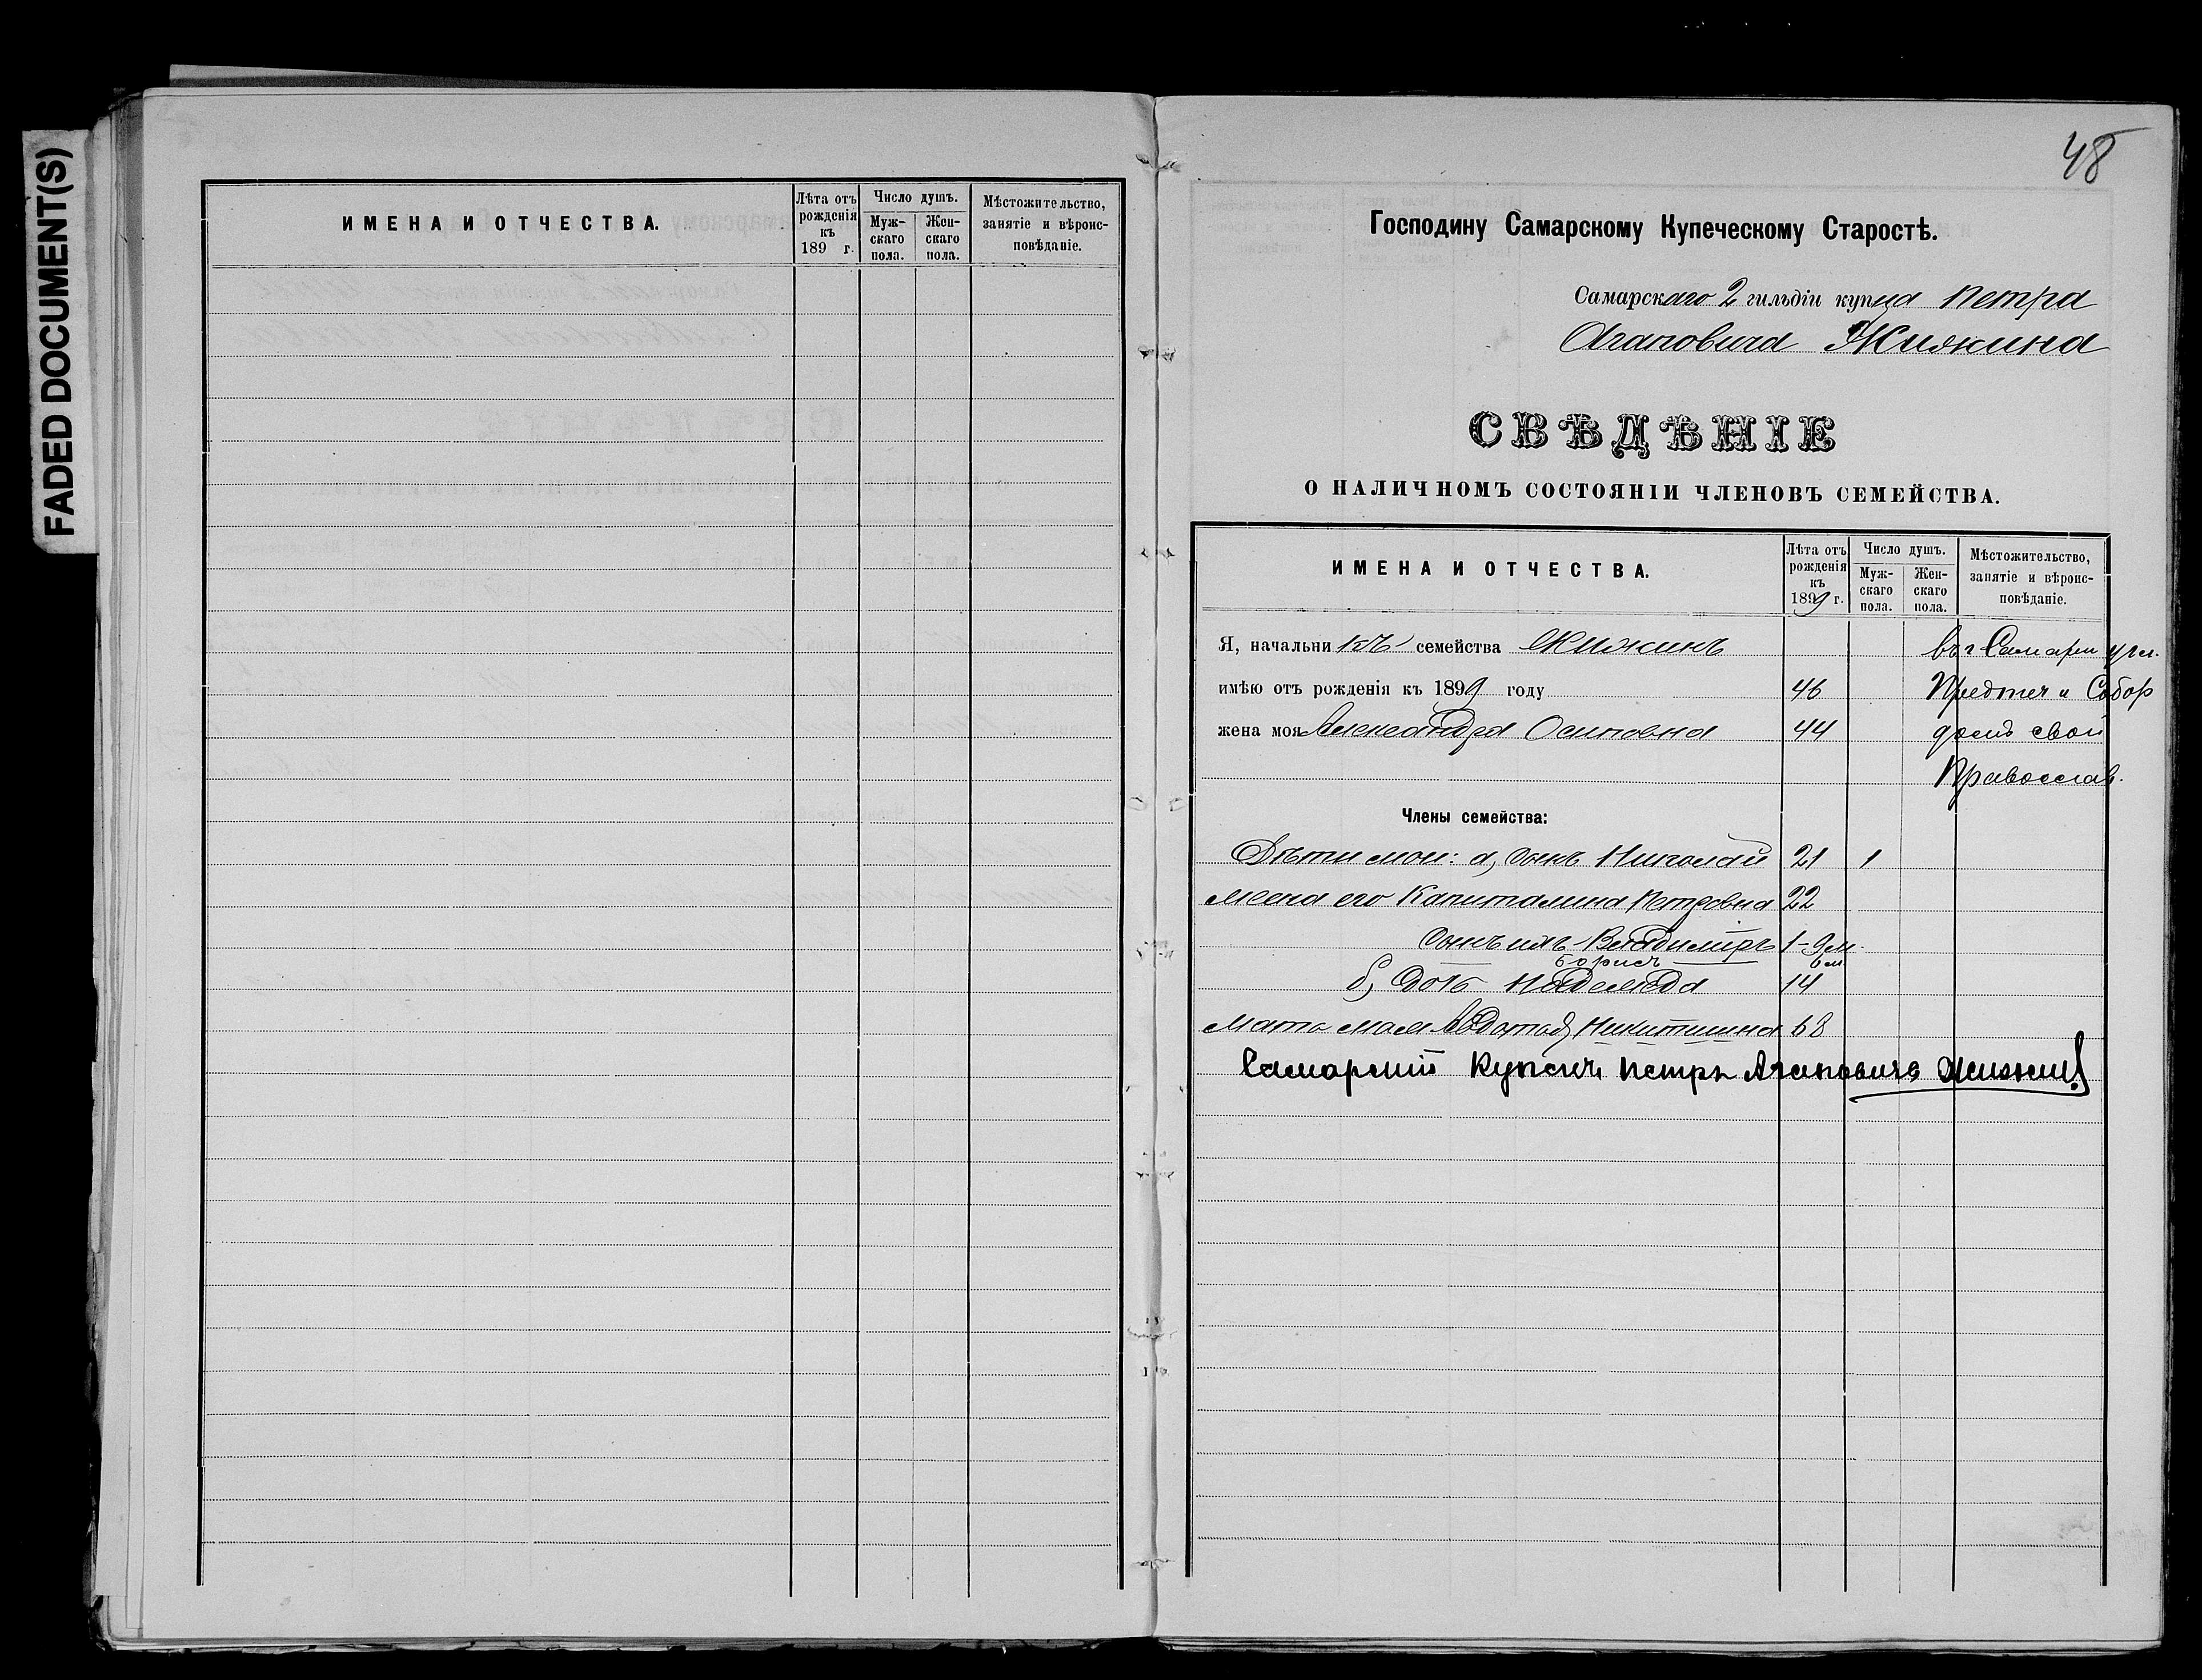 FADED DOCUMENT(S)
ИМЕНА И ОТЧЕСТВА.
Лѣта отъ рожденія къ 189 г.
Число душъ.
Муж-скаго пола.
Жен-скаго пола.
Мѣстожительство, занятіе и вѣроис-повѣданіе.
48
Господину Самарскому Купеческому Старостѣ.
Самарскаго 2 гильдіи купца Петра
Агаповича Жижина
СВѢДѢНІЕ
О НАЛИЧНОМЪ СОСТОЯНІИ ЧЛЕНОВЪ СЕМЕЙСТВА.
ИМЕНА И ОТЧЕСТВА.
Лѣта отъ рожденія къ 1899 г.
Число душъ.
Муж-скаго пола.
Жен-скаго пола.
Мѣстожительство, занятіе и вѣроис-повѣданіе.
Я, начальникъ семейства Жижинъ въ г Самарѣ угл.
имѣю отъ рожденія къ 1899 году 46 Предтеч и Собор
жена моя Александра Осиповна 44 домъ свой
Православ.
Члены семейства:
Дѣти мои: а, сынъ Николай 21 1
жена его Капиталина Петровна 22
сынъ ихъ Владиміръ 1-9 м.
Борисъ 6 м
б, Дочь Надежда 14
мать моя Авдотья Никитишна 68
Самарский Купецъ Петръ Агаповичъ Жижин